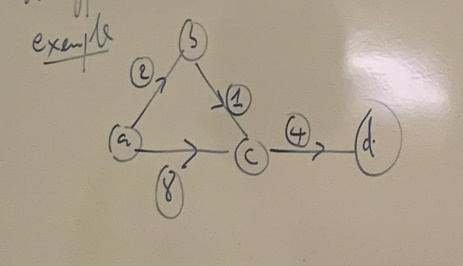 exemple
b
2
1
a
c
4
d.
8